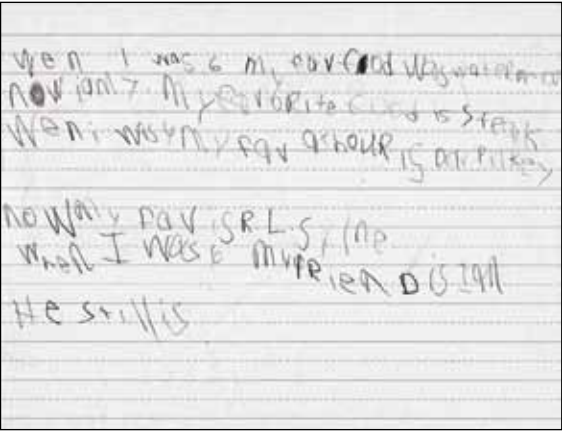 wen I was 6 my fav food was watermelon
now iam 7 My favorite food is Steak
Wen i was my fav athour is
now my fav is R.L.Stine
when I was 6 my FRienD is Ian
He still is